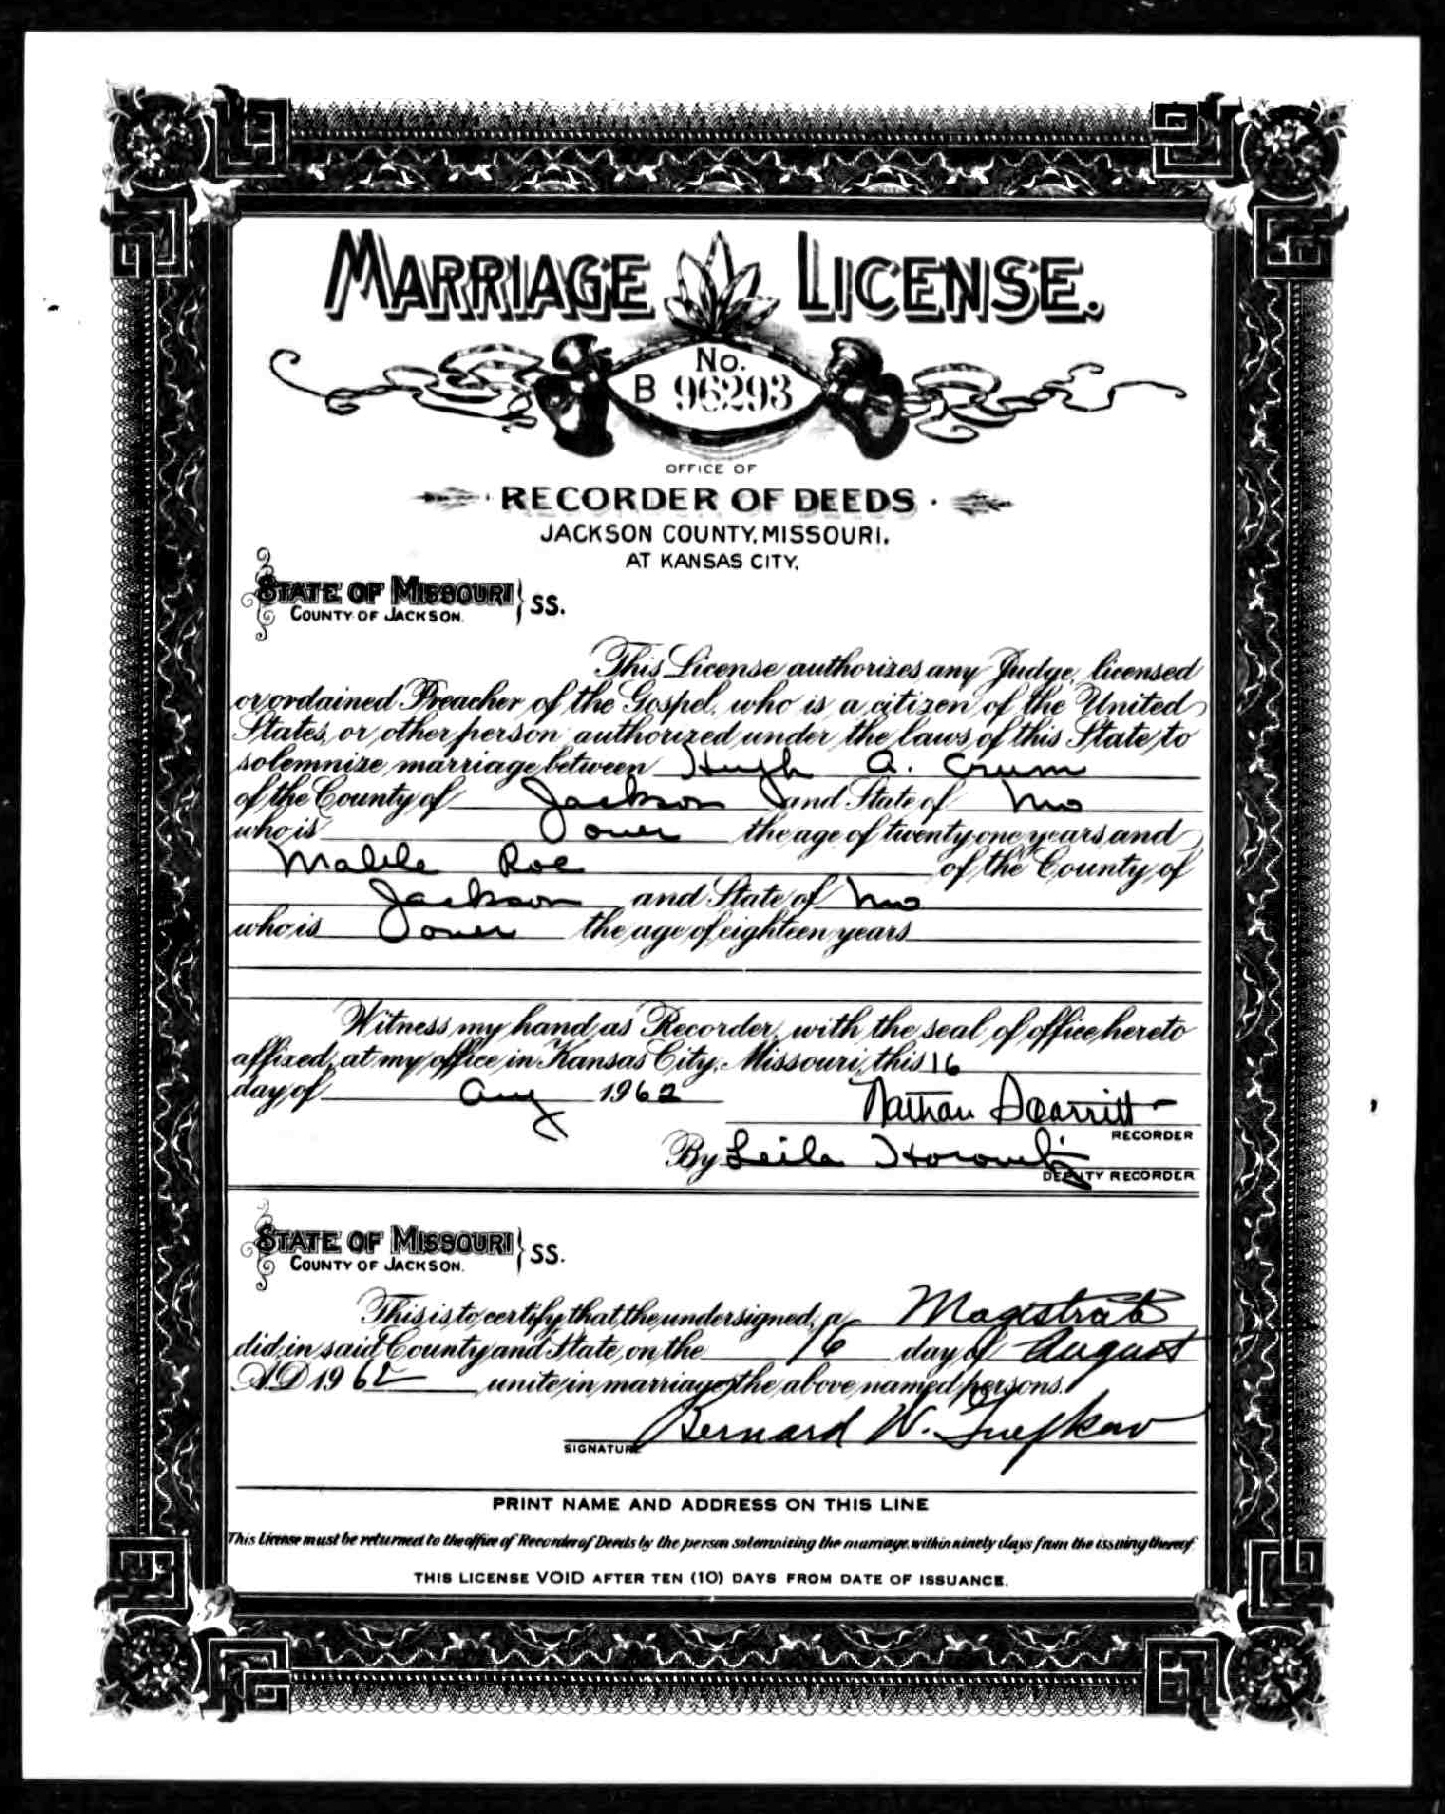 MARRIAGE LICENSE.
No.
B 96293
OFFICE OF
RECORDER OF DEEDS
JACKSON COUNTY, MISSOURI.
AT KANSAS CITY.
STATE OF MISSOURI
COUNTY OF JACKSON. } SS.
This License authorizes any Judge, licensed
or ordained Preacher of the Gospel, who is a citizen of the United
States, or other person authorized under the laws of this State, to
solemnize marriage between Hugh A. Crum
of the County of Jackson and State of Mo
who is over the age of twenty-one years and
Mable Roe of the County of
Jackson and State of Mo
who is over the age of eighteen years
Witness my hand as Recorder, with the seal of office hereto
affixed, at my office in Kansas City, Missouri, this 16
day of Aug 1962
Nathan Scarritt
RECORDER
By Leila Horowitz
DEPUTY RECORDER
STATE OF MISSOURI
COUNTY OF JACKSON. } SS.
This is to certify that the undersigned, a Magistrate
did in said County and State, on the 16 day of August
A.D. 1962 unite in marriage the above named persons.
Bernard W.
SIGNATURE
PRINT NAME AND ADDRESS ON THIS LINE
This License must be returned to the office of Recorder of Deeds by the person solemnizing the marriage, within ninety days from the issuing thereof
THIS LICENSE VOID AFTER TEN (10) DAYS FROM DATE OF ISSUANCE.